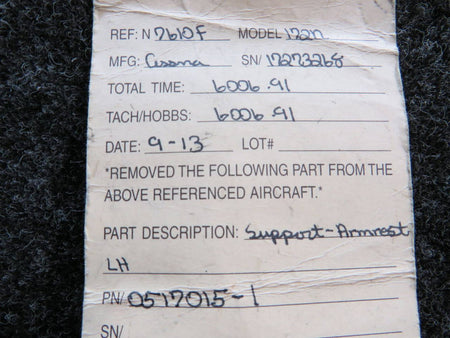 REF: N 7610F MODEL 172N
MFG: Cessna SN/ 17273268
TOTAL TIME: 6006.91
TACH/HOBBS: 6006.91
DATE: 9-13 LOT#
*REMOVED THE FOLLOWING PART FROM THE
ABOVE REFERENCED AIRCRAFT.*
PART DESCRIPTION: Support-Armrest
LH
PN/ 0517015-1
SN/